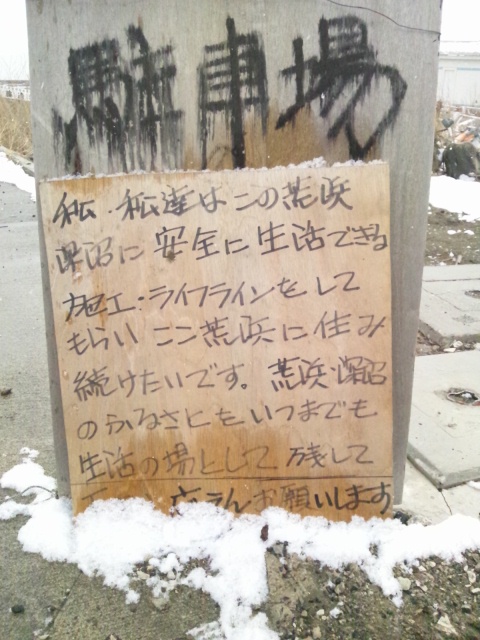 駐車場
私・私達はこの荒浜
深沼に安全に生活できる
施工・ライフラインをして
もらいここ荒浜に住み
続けたいです。荒浜・深沼
のふるさとをいつまでも
生活の場として残して
お願いします